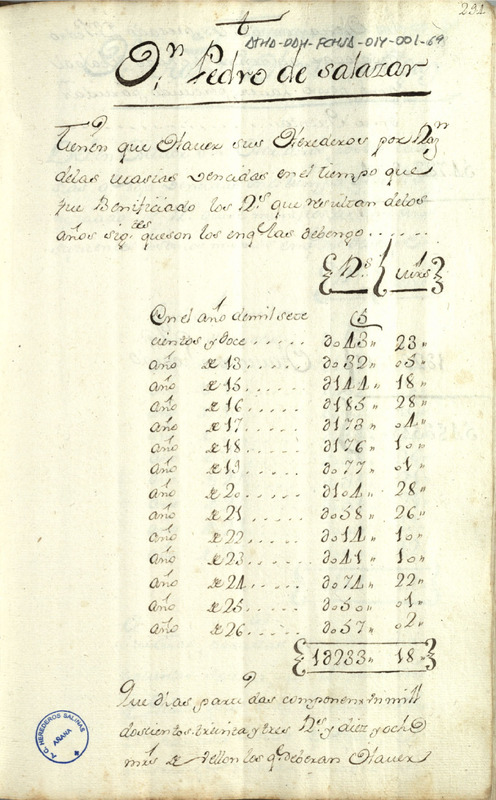 291
ATHA-DAH-FCHSA-014-001-69
Dn Pedro de Salazar
Tienen que Hauer sus Herederos por Razn
delas masias vencidas en el tiempo que
fue Benificiado los Rs que resultan delos
años sigtes que son los en q. las debengo......
Rs mrs
En el año de mil sete
cientos y doce..... ∂043" 23"
año de 13..... ∂032" 05"
año de 15..... ∂144" 18"
año de 16..... ∂185" 28"
año de 17..... ∂173" 04"
año de 18..... ∂176" 10"
año de 19..... ∂077" 01"
año de 20..... ∂104" 28"
año de 21..... ∂058" 26"
año de 22..... ∂014" 10"
año de 23..... ∂041" 10"
año de 24..... ∂074" 22"
año de 25..... ∂050" 01"
año de 26..... ∂057" 02"
1∂233" 18"
Que dhas partidas componen un mill
doscientos treinta y tres Rs y diez y ocho
mrs de vellon los q. deberan Hauer
T.C. HEREDEROS SALINAS
ARANA